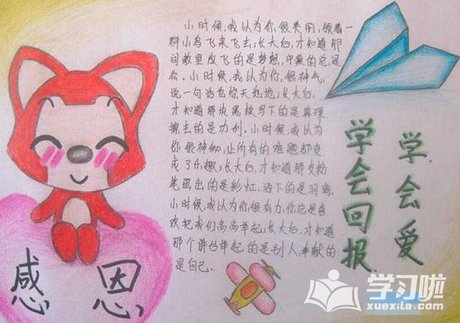 小时候,我认为你很美丽,领着一
群小鸟飞来飞去,长大后,才知道那
间教室放飞的是梦想,守巢的总是
你。小时候,我认为你很神气,
说一句话也惊天动地,长大后,
才知道那块黑板写下的是真理
擦去的是功利。小时候,我认为
你很神秘,让所有的难题都变
成了乐趣,长大后,才知道那支粉
笔画出的是彩虹,洒下的是泪滴。
小时候,我认为你很有力,你总是喜
欢把我们高高举起,长大后,才知道
那个讲台举起的是别人,奉献的
是自己。
学会爱
学会回报
感恩
学习啦
www.xuexila.com